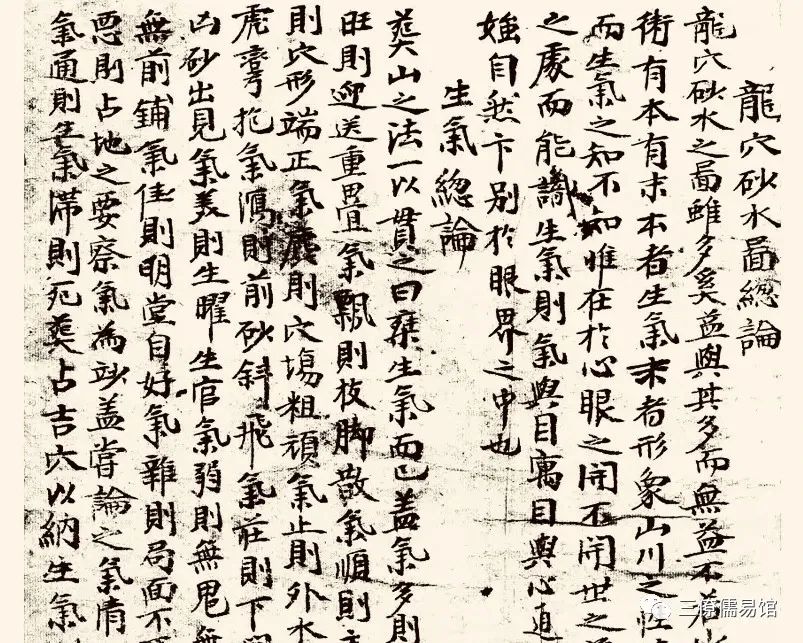 龍穴砂水啚總論
龍穴砂水之啚雖多奚益與其多而無益不若
術有本有末本者生氣末者形象山川之性
而生氣之知不知惟在於心眼之開不開世之
之處而能識生氣則氣與目寓目與心
媸自然卞別於眼界之中也
生氣總論
葬山之法一以貫之曰葬生氣而已蓋氣多則
旺則迎送重疊氣飄則枝脚散氣順則
則穴形端正氣 則穴塲粗頑氣止則外水
虎彎抱氣 則前砂斜飛氣莊則下
凶砂出見氣美則生曜生官氣弱則無鬼無
無前鋪氣佳則明堂自好氣雜則局面不
悪則占地之要察氣為 蓋嘗論之氣有
氣通則生氣滯則死葬占吉穴以納生氣
三僚儒易馆